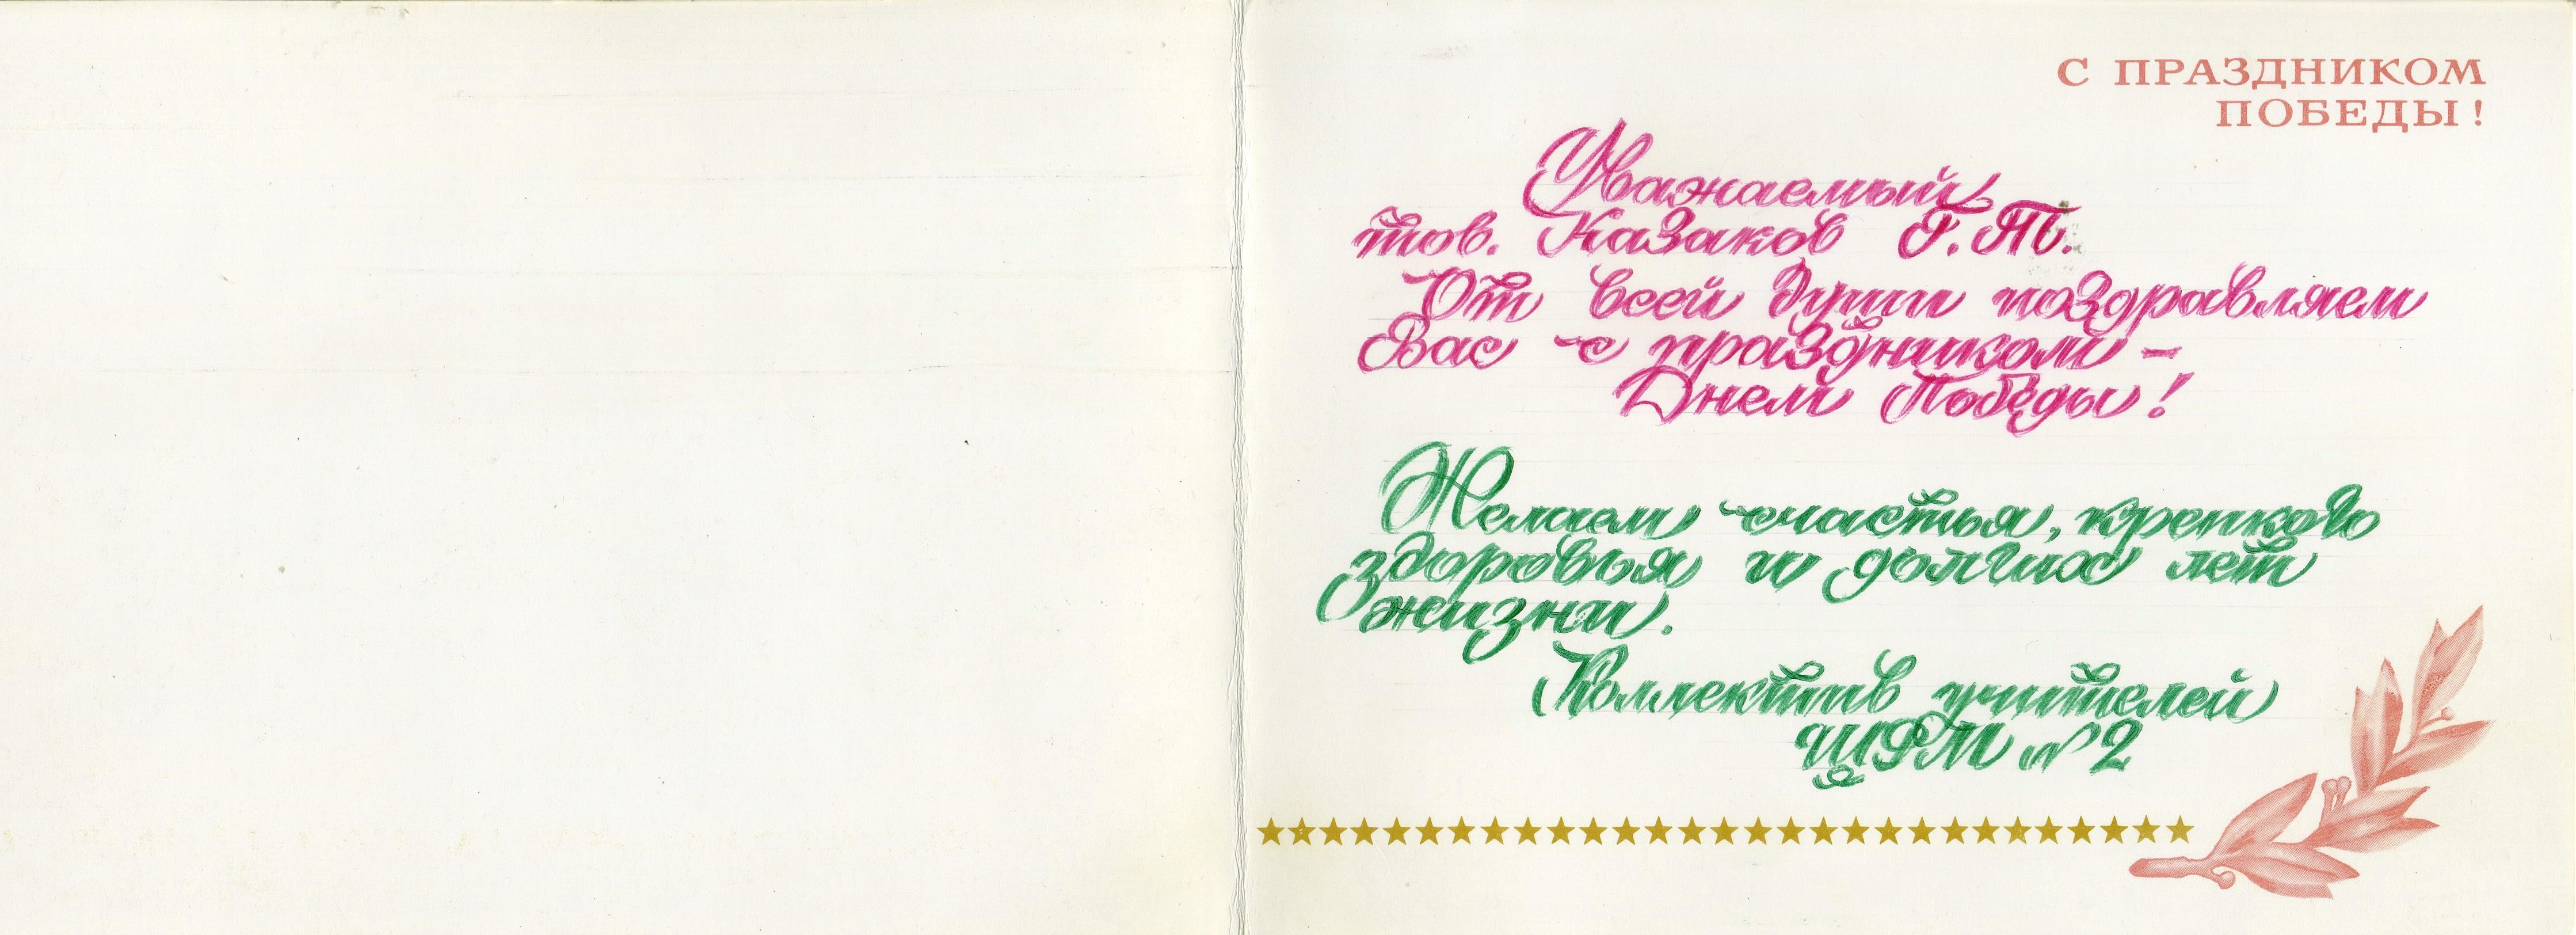 С ПРАЗДНИКОМ
ПОБЕДЫ!
Уважаемый
тов. Казаков Г.Т.
От всей души поздравляем
Вас с праздником –
Днем Победы!
Желаем счастья, крепкого
здоровья и долгих лет
жизни.
Коллектив учителей
ШРМ №2